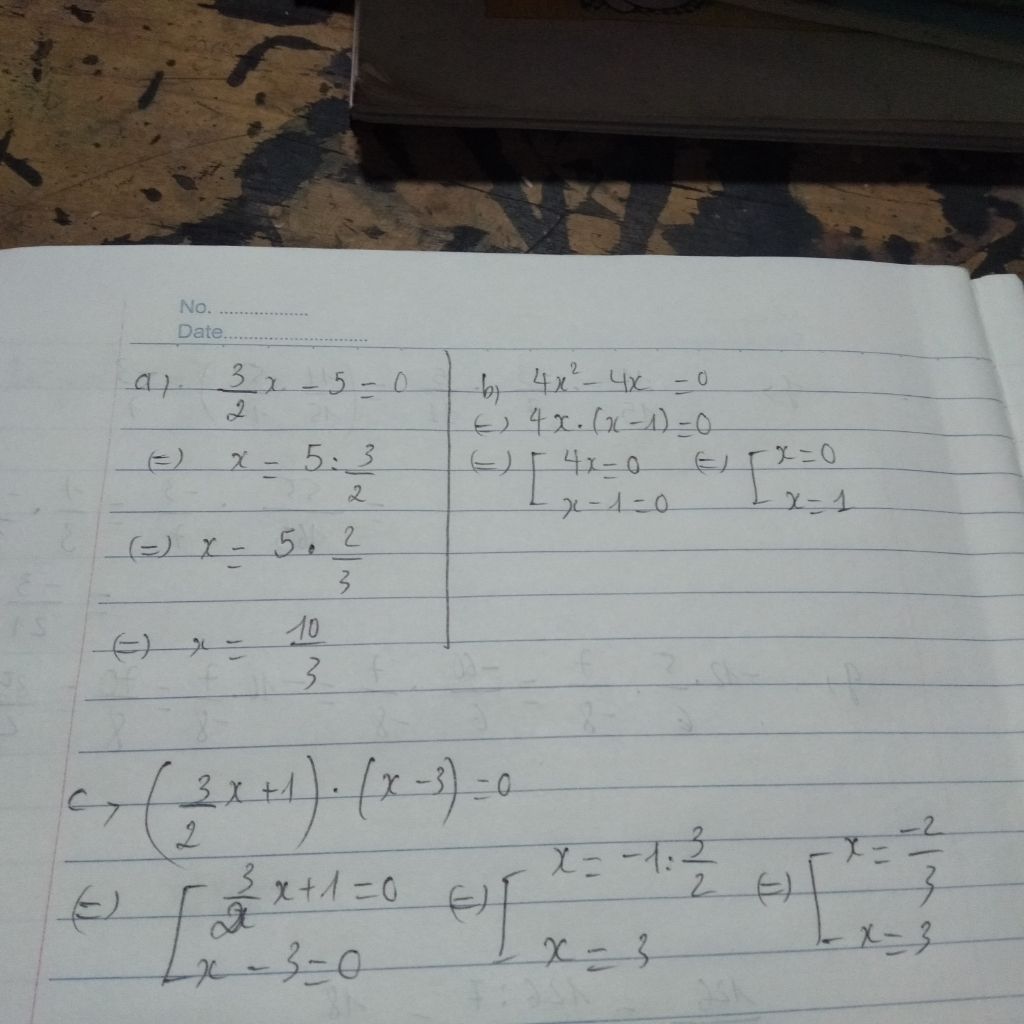 No. ....................
Date.................................
a, 3/2 x - 5 = 0
(=) x = 5 : 3/2
(=) x = 5 . 2/3
(=) x = 10/3
b, 4x² - 4x = 0
(=) 4x . (x - 1) = 0
(=) [ 4x = 0 (=) [ x = 0
x - 1 = 0 x = 1
c, (3/2 x + 1) . (x - 3) = 0
(=) [ 3/2 x + 1 = 0 (=) [ x = -1 : 3/2 (=) [ x = -2/3
x - 3 = 0 x = 3 x = 3